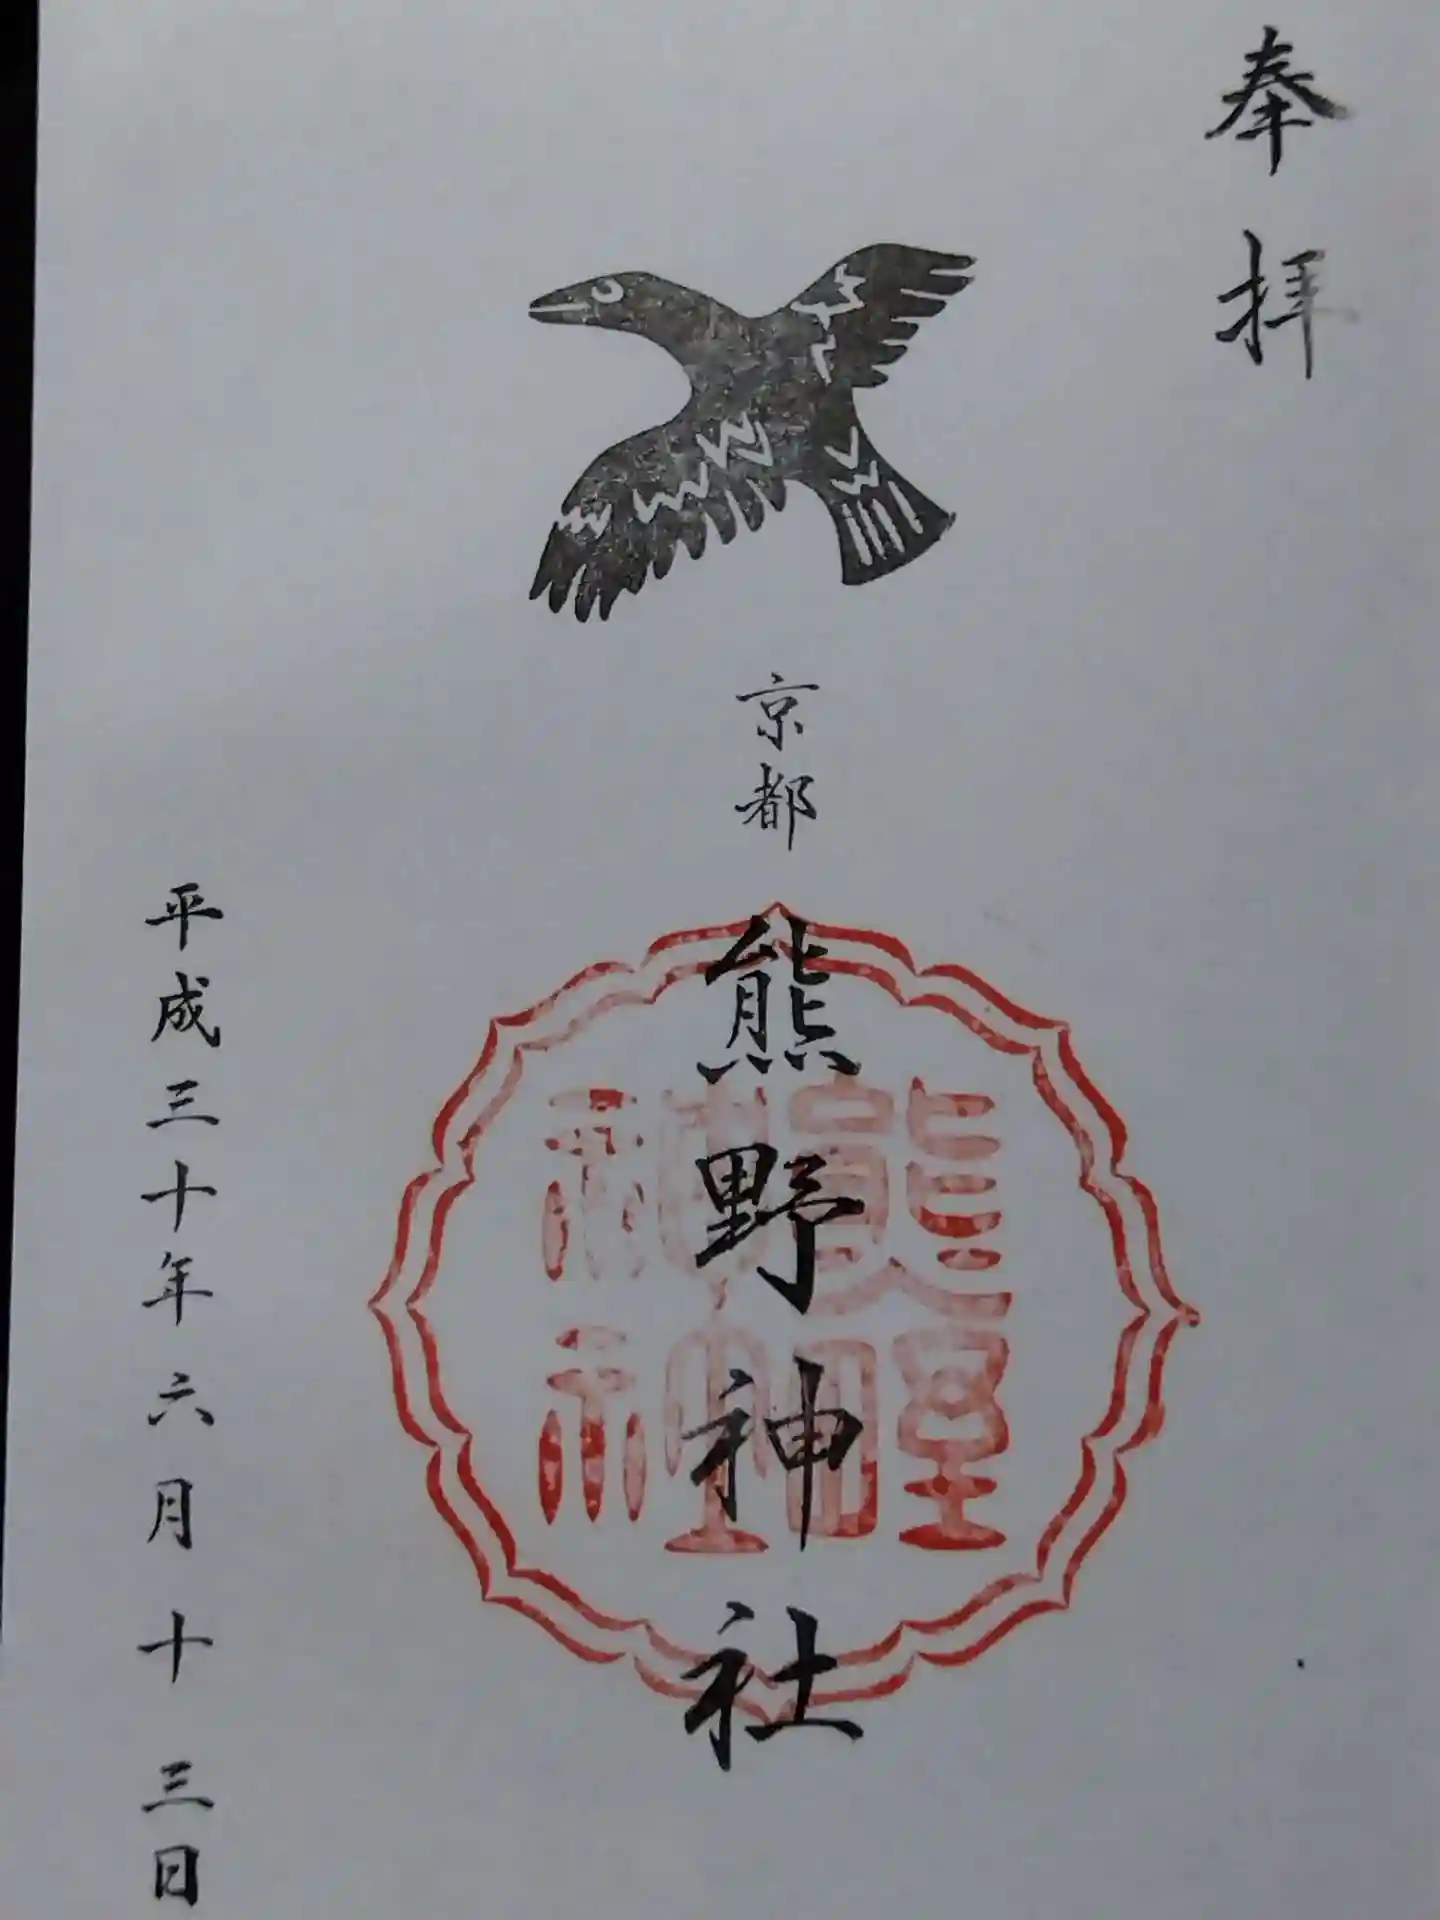 奉拝
京都
熊野神社
熊野神社
平成三十年六月十三日